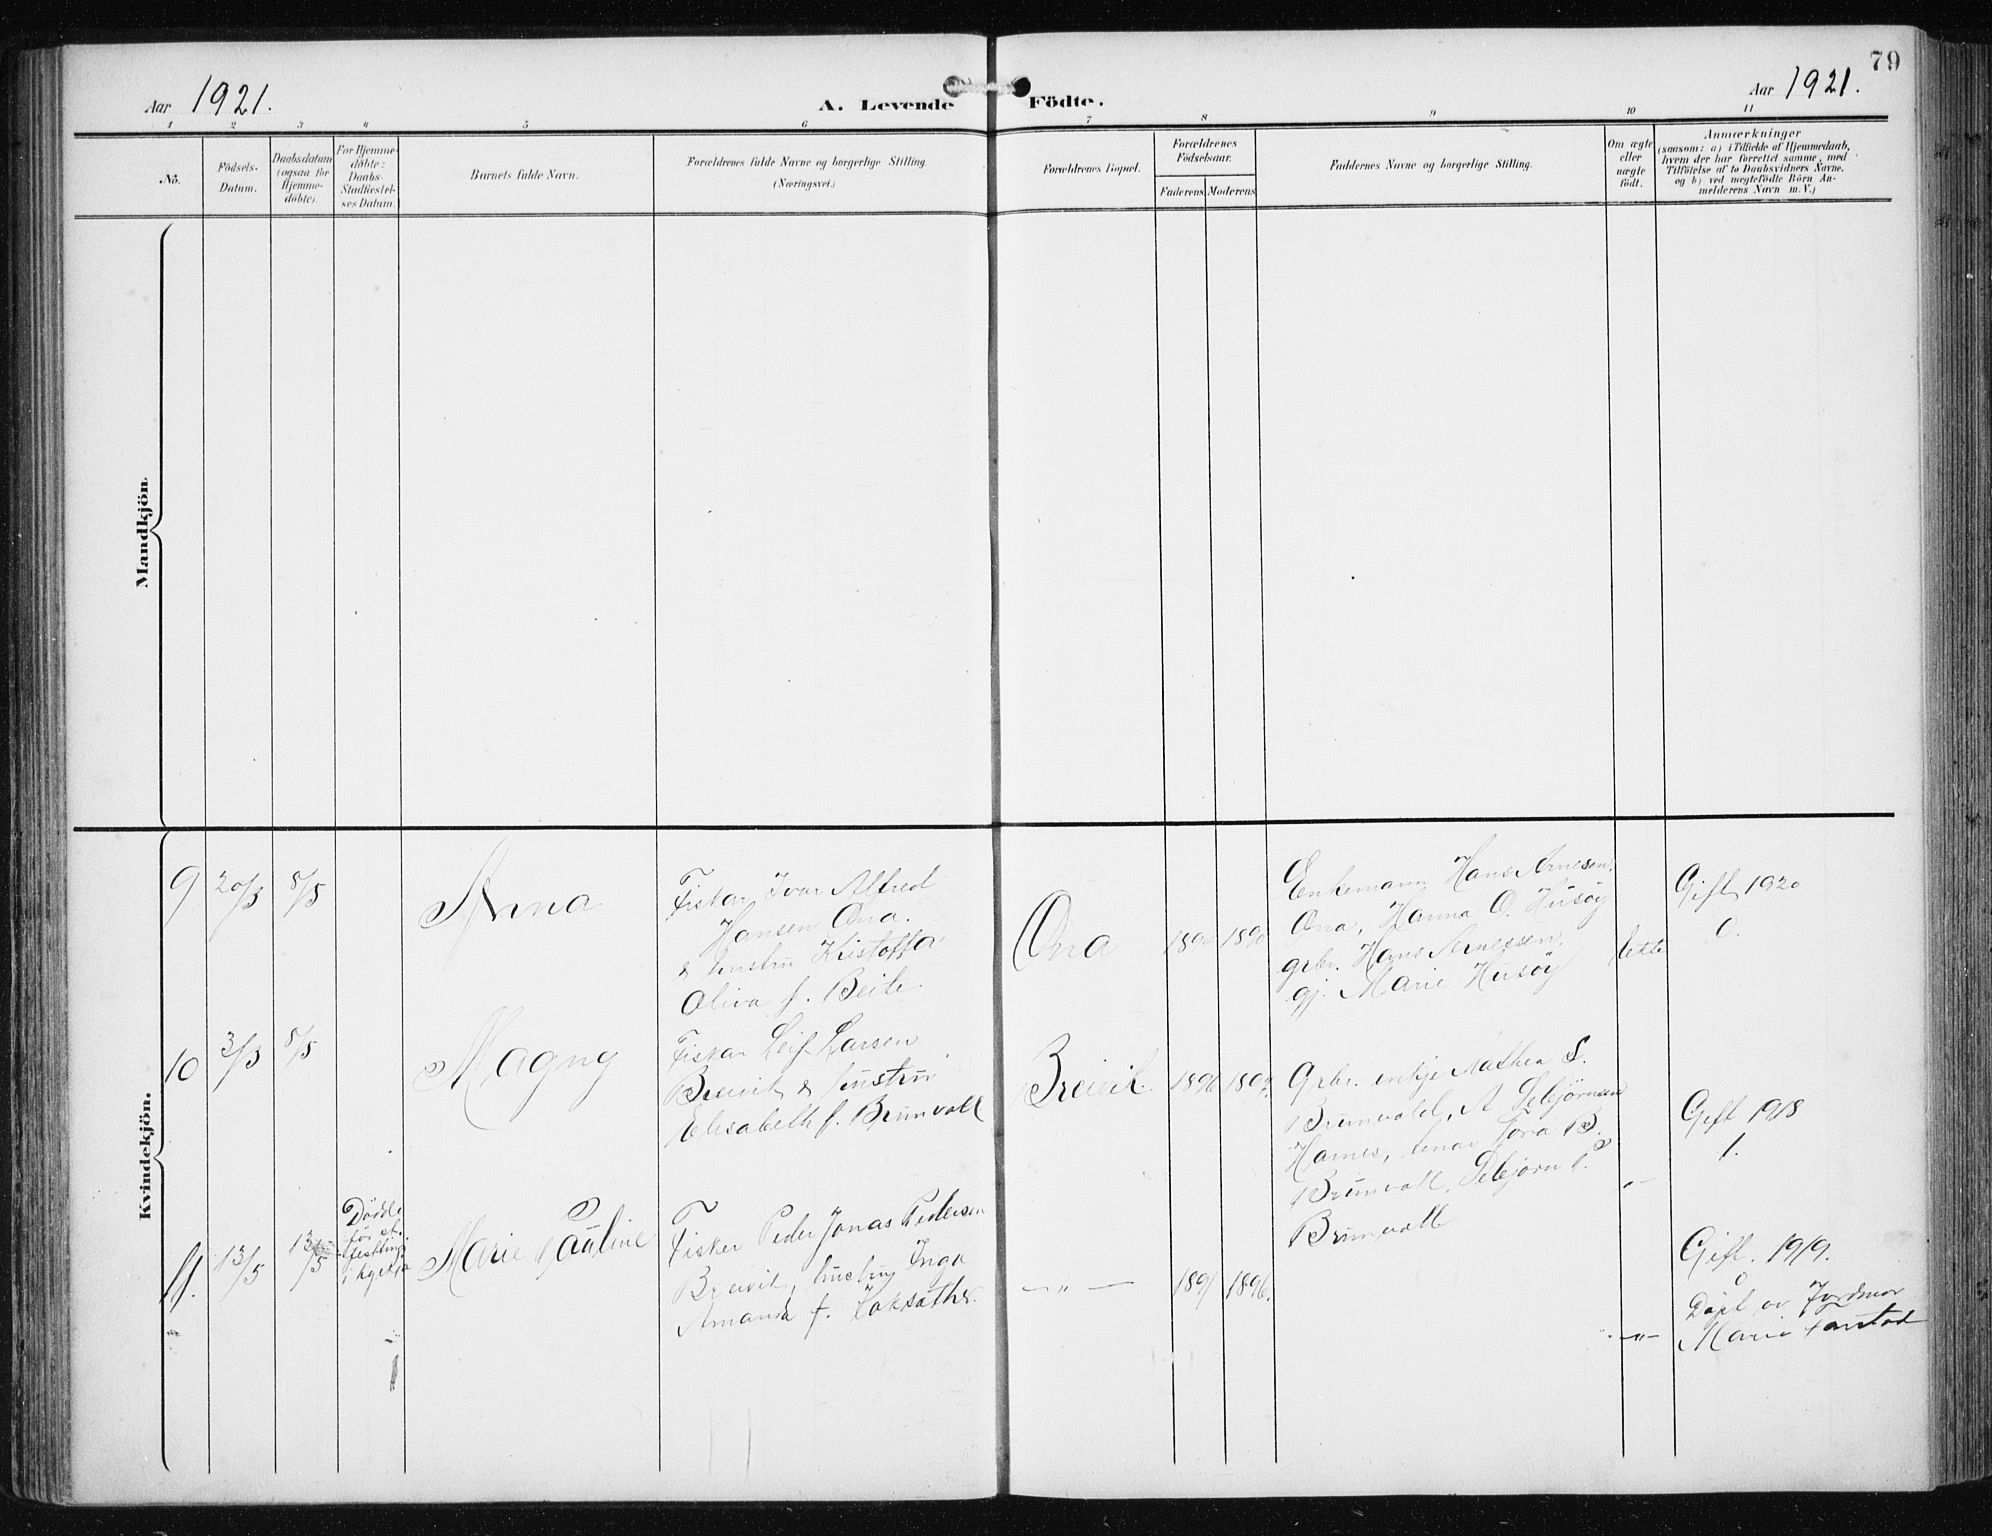 79
Aar 1921.
A. Levende Födte.
Aar 1921.
1 2 3 4 5 6 7 8 9 10 11
No.
Födsels-
Datum.
Daabsdatum
(ogsaa for
Hjemme-
döbte).
For Hjemme-
döbte:
Daabs-
Stadfæstel-
ses Datum.
Barnets fulde Navn.
Forældrenes fulde Navne og borgerlige Stilling
(Næringsvei.)
Forældrenes Bopæl.
Forældrenes
Födselsaar.
Faderens Moderens
Faddernes Navne og borgerlige Stilling.
Om ægte
eller
uægte
födt.
Anmærkninger
(saasom: a) i Tilfælde af Hjemmedaab,
hvem der har forrettet samme, med
Tilföielse af to Daabsvidners Navne.
og b) ved uægtefödte Börn An-
melderens Navn m. V.)
Mandkjön.
Kvindekjön.
9
20/3
8/5
Anna
Fisker Ivar Alfred
Hansen Ona.
& hustru Kristoffa
Oliva f. Beite.
Ona
Enkemann Hans Arnesen
Ona, Hanna O. Husöy
grbr. Hans Arnessen,
gj. Marie Husöy
ekte
Gift 1920
0.
10
3/3
8/5
Magny
Fisker Leif Larsen
Breivik & hustru
Elisabeth f. Brunvoll
Breivik.
1896
Grbr. enkje Mathea S.
Brunvoll, A Sebjörnsen
Harnes, Tora B.
Brunvoll, Sebjörn P.
Brunvoll
-"-
Gift 1918
1.
11.
13/5
13/5
Dödde
för st.
festing
i kyrkja
Marie Pauline
Fisker Peder Jonas Pedersen
Breivik, hustru Inga
Amanda f.
-"-
1891
1896.
-"-
Gift. 1919.
0
Döpt av Jordmor
Marie